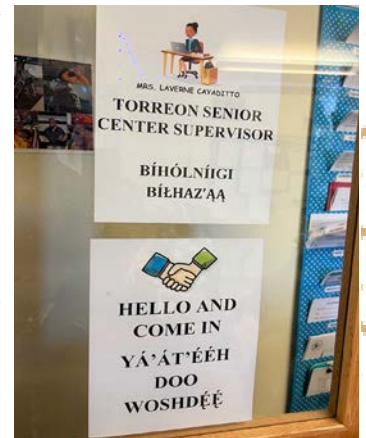 MRS. LAVERNE CAYADITTO
TORREON SENIOR
CENTER SUPERVISOR
BÍHÓLNÍIGI
BIŁHAZ'ĄĄ
HELLO AND
COME IN
YÁ'ÁT'ÉÉH
DOO
WOSHDĘ́Ę́